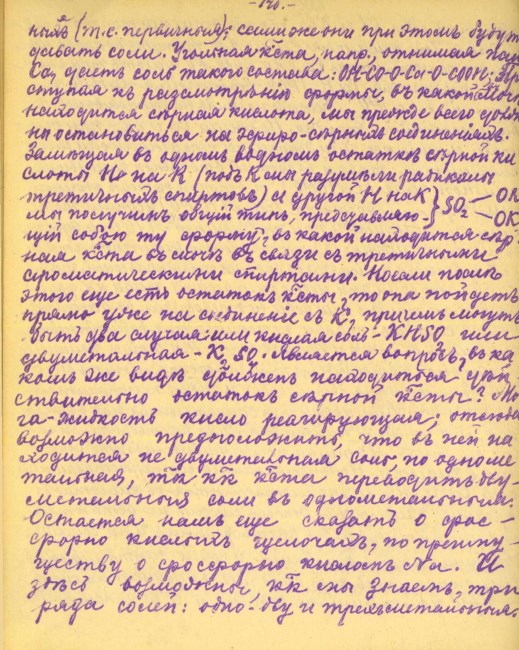 -140.-
ныя (т.е. первичныя); сами же они при этомъ будутъ
давать соли. Угольная к'ста, напр., отнимая
Ca, даетъ соль такого состава: OH-CO-O-Ca-O-COOH; При
ступая къ разсмотрѣнію формы, въ какой
находится сѣрная кислота, мы прежде всего долж
ны остановиться на эфиро-сѣрныхъ соединеніяхъ.
Замѣщая въ одномъ водномъ остаткѣ сѣрной ки
слоты H на R (подъ R мы разумѣли радикалы
третичныхъ спиртовъ) а другой H на K } SO2 - OR
мы получимъ общій типъ, представляю- - OK
щій собою ту форму, въ какой находится сѣр
ная к'ста въ мочѣ въ связи съ третичными
ароматическими спиртами. Но если послѣ
этого еще есть остатокъ к'сты, то она пойдетъ
прямо уже на соединеніе съ K, причемъ могутъ
быть два случая: или кислая соль - KHSO4 или
двуметальная - K2SO4. Является вопросъ, въ ка
комъ же видѣ долженъ находиться дѣй
ствительно остатокъ сѣрной к'сты? Мо
ча - жидкость кисло реагирующая; отсюда
возможно предположить, что въ ней на
ходится не двуметальная соль, но одноме
тальная, т'к к'к к'ста переводитъ дву-
метальныя соли въ однометальныя.
Остается намъ еще сказать о фос-
форно кислыхъ щелочахъ, по преиму-
ществу о фосфорно кисломъ Na. И
здѣсь возможны, к'к мы знаемъ, три
ряда солей: одно- дву и трехметальныя.